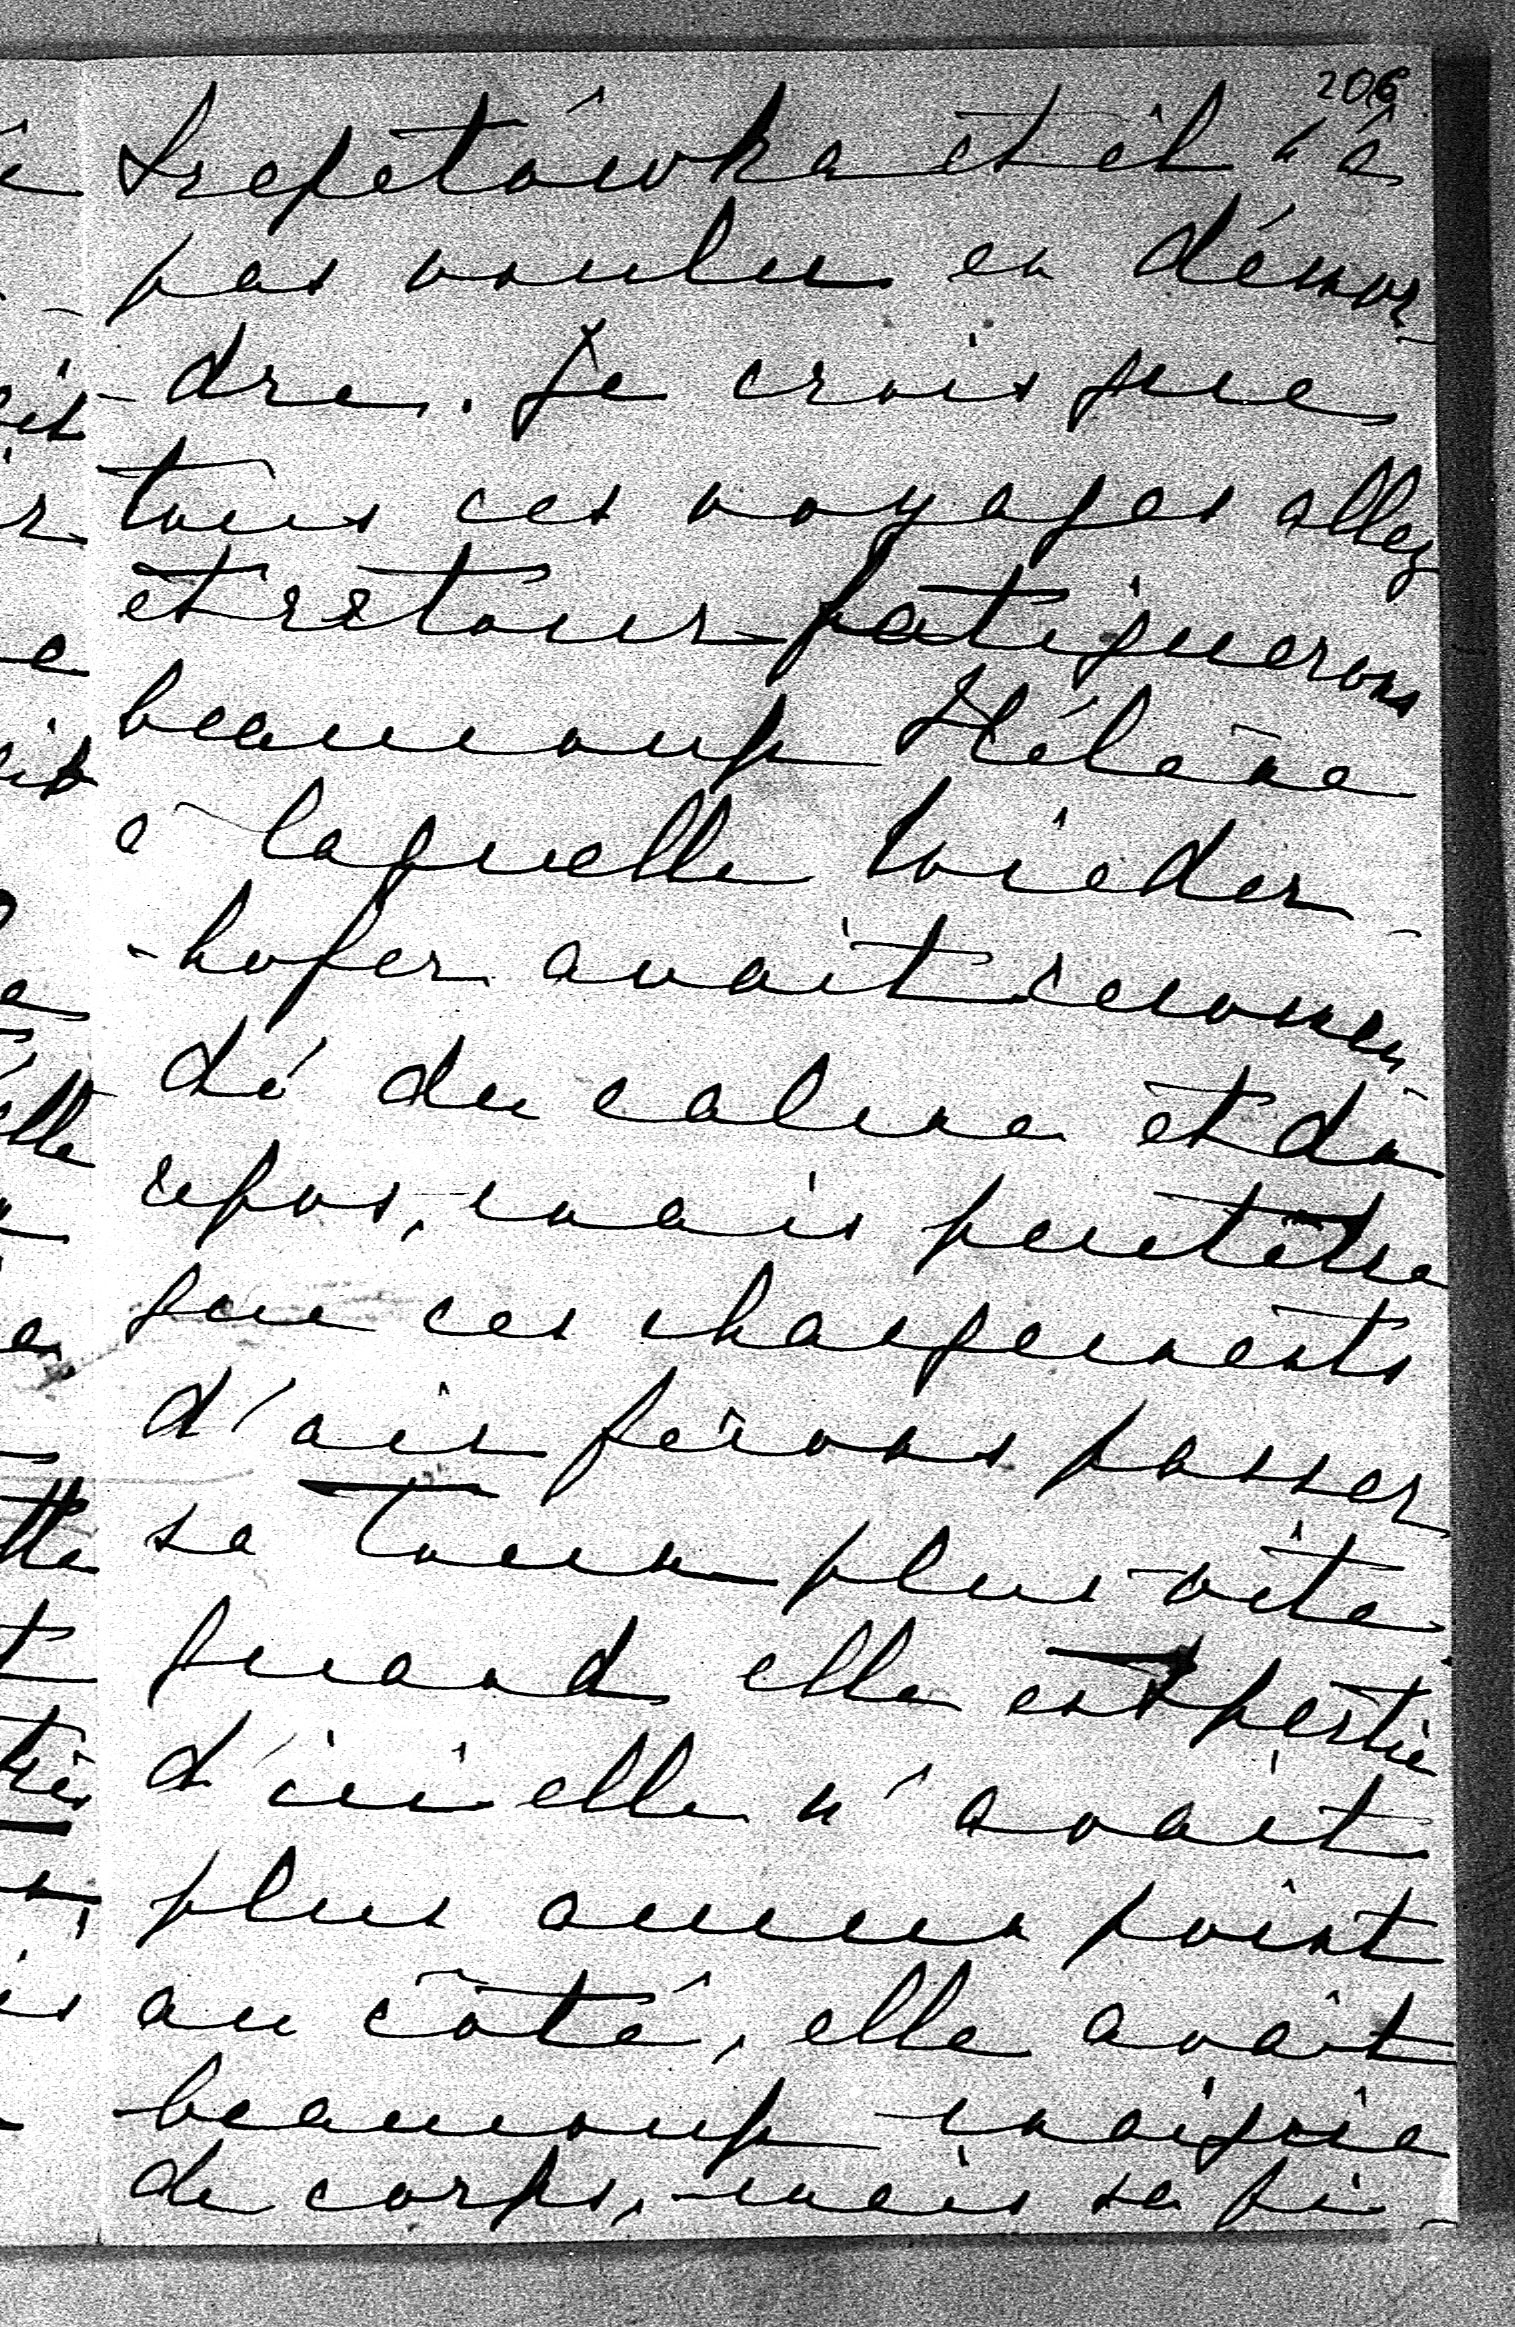 206
Srepetowka et il n'a
pas voulu en démor-
-dre. Je crois que
tous ces voyages allez
et retour fatiguerons
beaucoup Hélène
à laquelle Wieder-
-hofer avait recomen-
dé du calme et du
repos, mais peutêtre
que ces changements
d'air ferons passer
sa toux plus vite.
quand elle est partie
d'ici elle n'avait
plus aucun point
au côté, elle avait
beaucoup maigrie
de corps, mais sa fi-